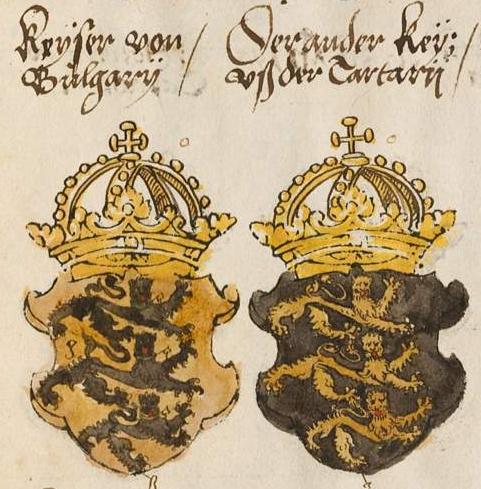 Keÿser von
Bulgarÿ /
Der ander Keÿ:
vß der Tartarÿ /